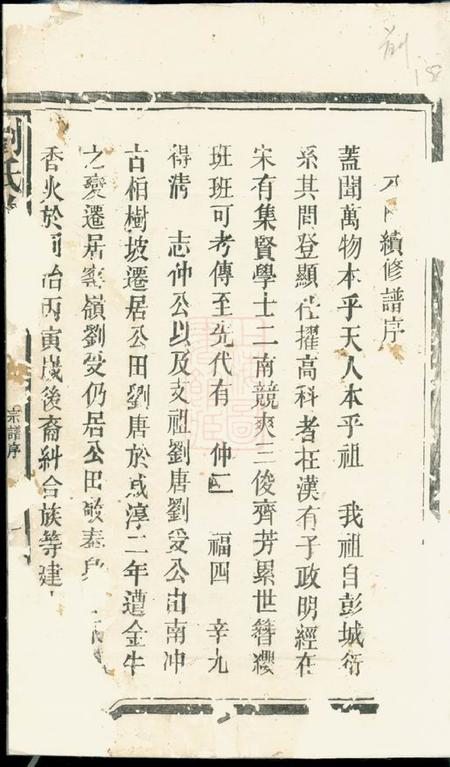 續修譜序
蓋聞萬物本乎天人本乎祖 我祖自彭城衍
系其間登顯仕擢高科者在漢有子政明經在
宋有集賢學士二南競爽三俊齊芳累世簪纓
班班可考傳至先代有 仲 福四 辛九
得清 志仲公以及支祖劉唐劉受公由南冲
古柏樹坡遷居公田劉唐於咸淳二年遭金牛
之變遷居 嶺劉受仍居公田 泰
香火於 治丙寅歲後裔糾合族等建
劉氏
宗譜序
一